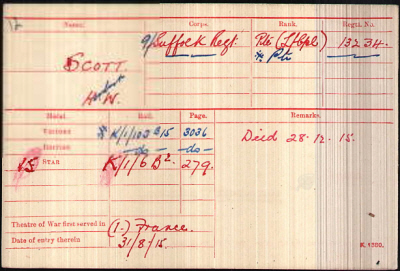 Name. Corps. Rank. Regtl. No.
SCOTT. 9/Suffolk Regt. Pte (L/Cpl) 13234.
H.W. * Pte
Medal. Roll. Page. Remarks.
VICTORY * K/1/103 B15 3036 Died 28-12-15.
BRITISH -do- -do-
15 STAR K/1/6 B2. 279.
Theatre of War first served in (1.) France.
Date of entry therein 31/8/15.
K. 1380.